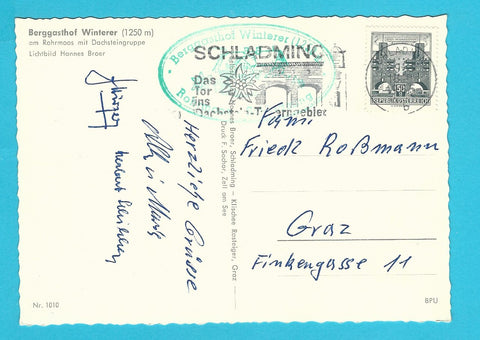 Berggasthof Winterer (1250 m)
am Rohrmoos mit Dachsteingruppe
Lichtbild Hannes Broer
Berggasthof Winterer (1250 m)
SCHLADMING
Das
Tor
ins
Dachstein-Tauerngebiet
50
REPUBLIK ÖSTERREICH
Herzliche Grüsse
Hannes Broer, Schladming – Klischee Rosteiger, Graz
Druck F. Sochor, Zell am See
Fam.
Friedl Roßmann
Graz
Finkengasse 11
Nr. 1010
BPU